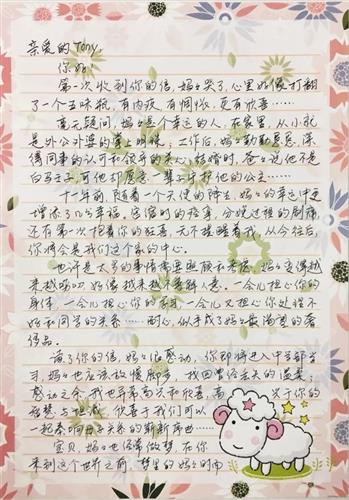 亲爱的Tony,
你好！
第一次收到你的信，妈妈哭了，心里好像打翻
了一个五味瓶，有内疚，有惆怅，更有欣喜……
毫无疑问，妈妈是个幸运的人，在家里，从小就
是外公外婆的掌上明珠，工作后，妈妈勤勤恳恳，深
得同事的认可和领导的关心；结婚时，爸爸说他不是
白马王子，可他却愿意一辈子守护他的公主……
十一年前，随着一个天使的降生，妈妈的幸运中更
增添了几分幸福，
还有第一次抱着你的狂喜，无不提醒着我，从今往后，
你将会是我们这个家的中心。
也许是太多的事情需要照顾和考虑，妈妈变得越
来越唠叨，好像越来越不善解人意。一会儿担心你的
身体，一会儿担心你的学习，一会儿又担心你处理不
好和同学的关系……耐心，似乎成了妈妈最渴望的奢
侈品。
读了你的信，妈妈很感动，你即将进入中学部学
习，妈妈也应该放慢脚步，找回曾经丢失的温柔，
感动之余，我也异常高兴和欣喜，高兴于你的
智慧与坦诚，欣喜于我们可以
一起奏响母子关系的崭新序曲……
宝贝，妈妈也经常做梦，在你
来到这个世界之前，梦里的妈妈时而